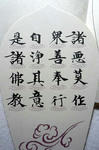 諸惡莫作
眾善奉行
自淨其意
是諸佛教